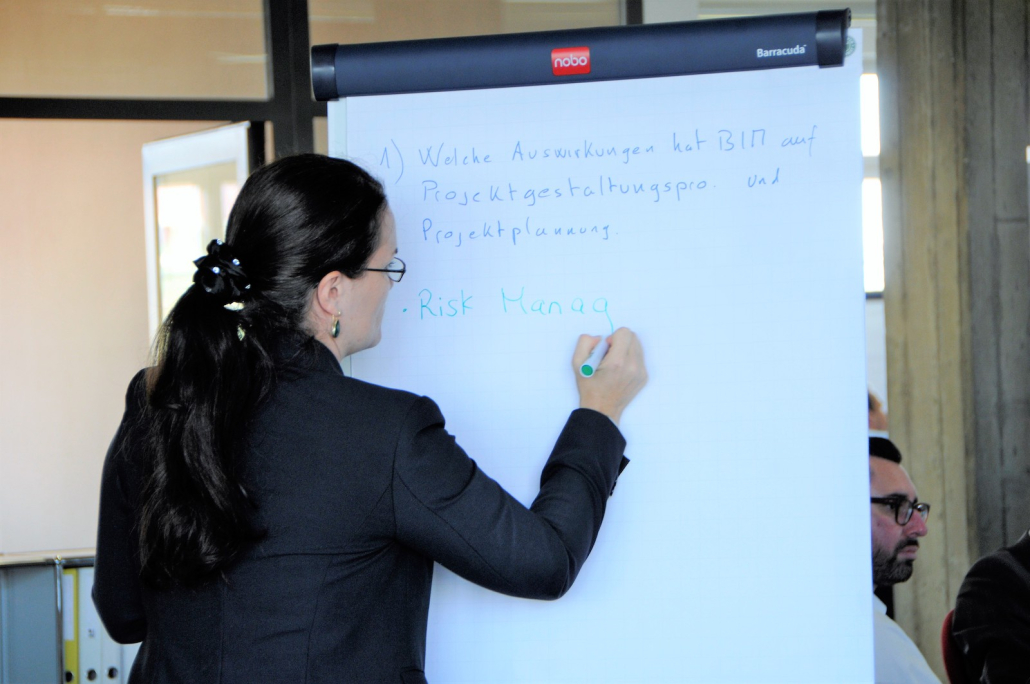 nobo
Barracuda
1) Welche Auswirkungen hat BIM auf
Projektgestaltungspro. und
Projektplannung.
· Risk Manag